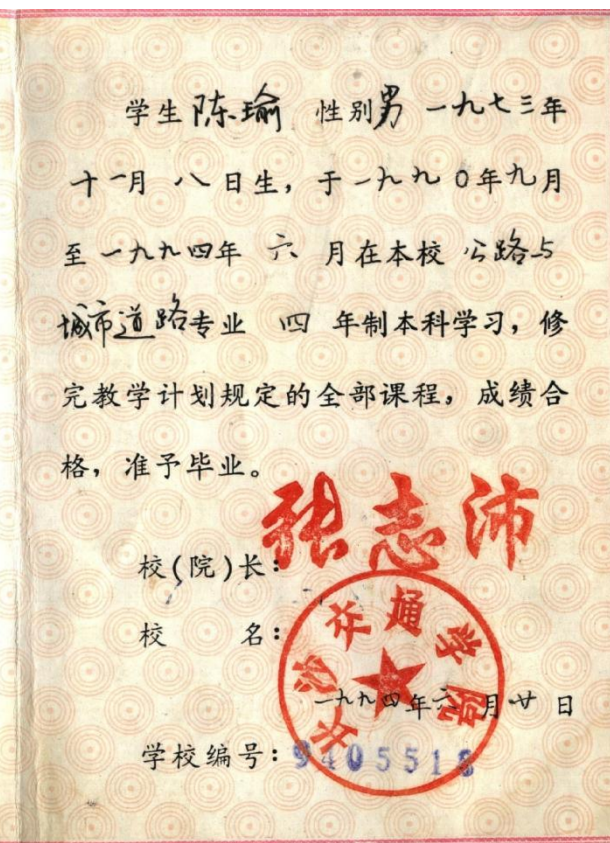 学生陈瑜 性别男 一九七三年
十一月 八日生，于一九九0年九月
至一九九四年 六 月在本校 公路与
城市道路专业 四 年制本科学习，修
完教学计划规定的全部课程，成绩合
格，准予毕业。
校(院)长：张志沛
校 名：
长沙交通学院
一九九四年六月廿日
学校编号：9405518